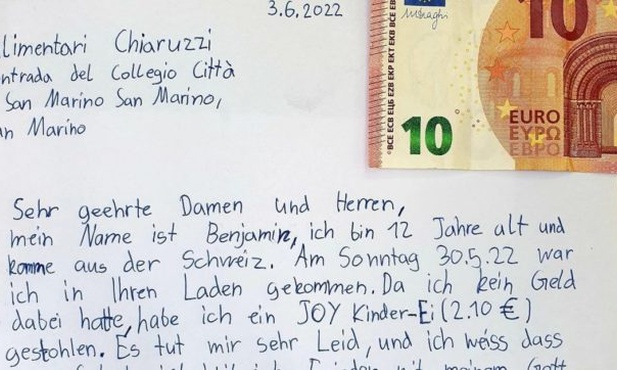 3.6.2022
limentari Chiaruzzi
ntrada del Collegio Città
San Marino San Marino,
n Marino
10
EURO
ΕΥΡΩ
ЕВРО
10
©BCE ECB ЕЦБ EZB EKP EKT EKB BCE EB
Sehr geehrte Damen und Herren,
mein Name ist Benjamin, ich bin 12 Jahre alt und
komme aus der Schweiz. Am Sonntag 30.5.22 war
ich in Ihren Laden gekommen. Da ich kein Geld
dabei hatte, habe ich ein JOY Kinder-Ei (2.10 €)
gestohlen. Es tut mir sehr Leid, und ich weiss dass